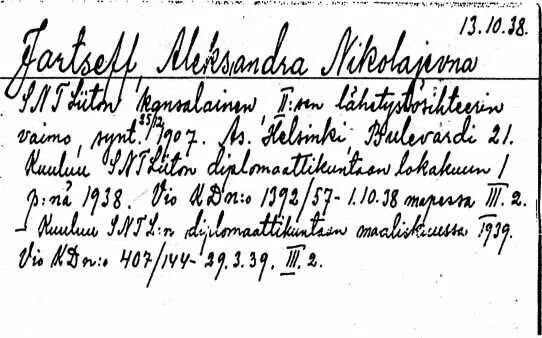 13.10.38.
Jartseff, Aleksandra Nikolajevna
SNTLiiton kansalainen, II:sen lähetystösihteerin
vaimo, synt. 25/12 1907. As. Helsinki, Bulevardi 21.
Kuuluu SNTLiiton diplomaattikuntaan lokakuun 1
p:nä 1938. Vio KD n:o 1392/57-1.10.38 mapessa III. 2.
- Kuuluu SNTL:n diplomaattikuntaan maaliskuussa 1939.
Vio KD n:o 407/144- 29.3.39. III. 2.